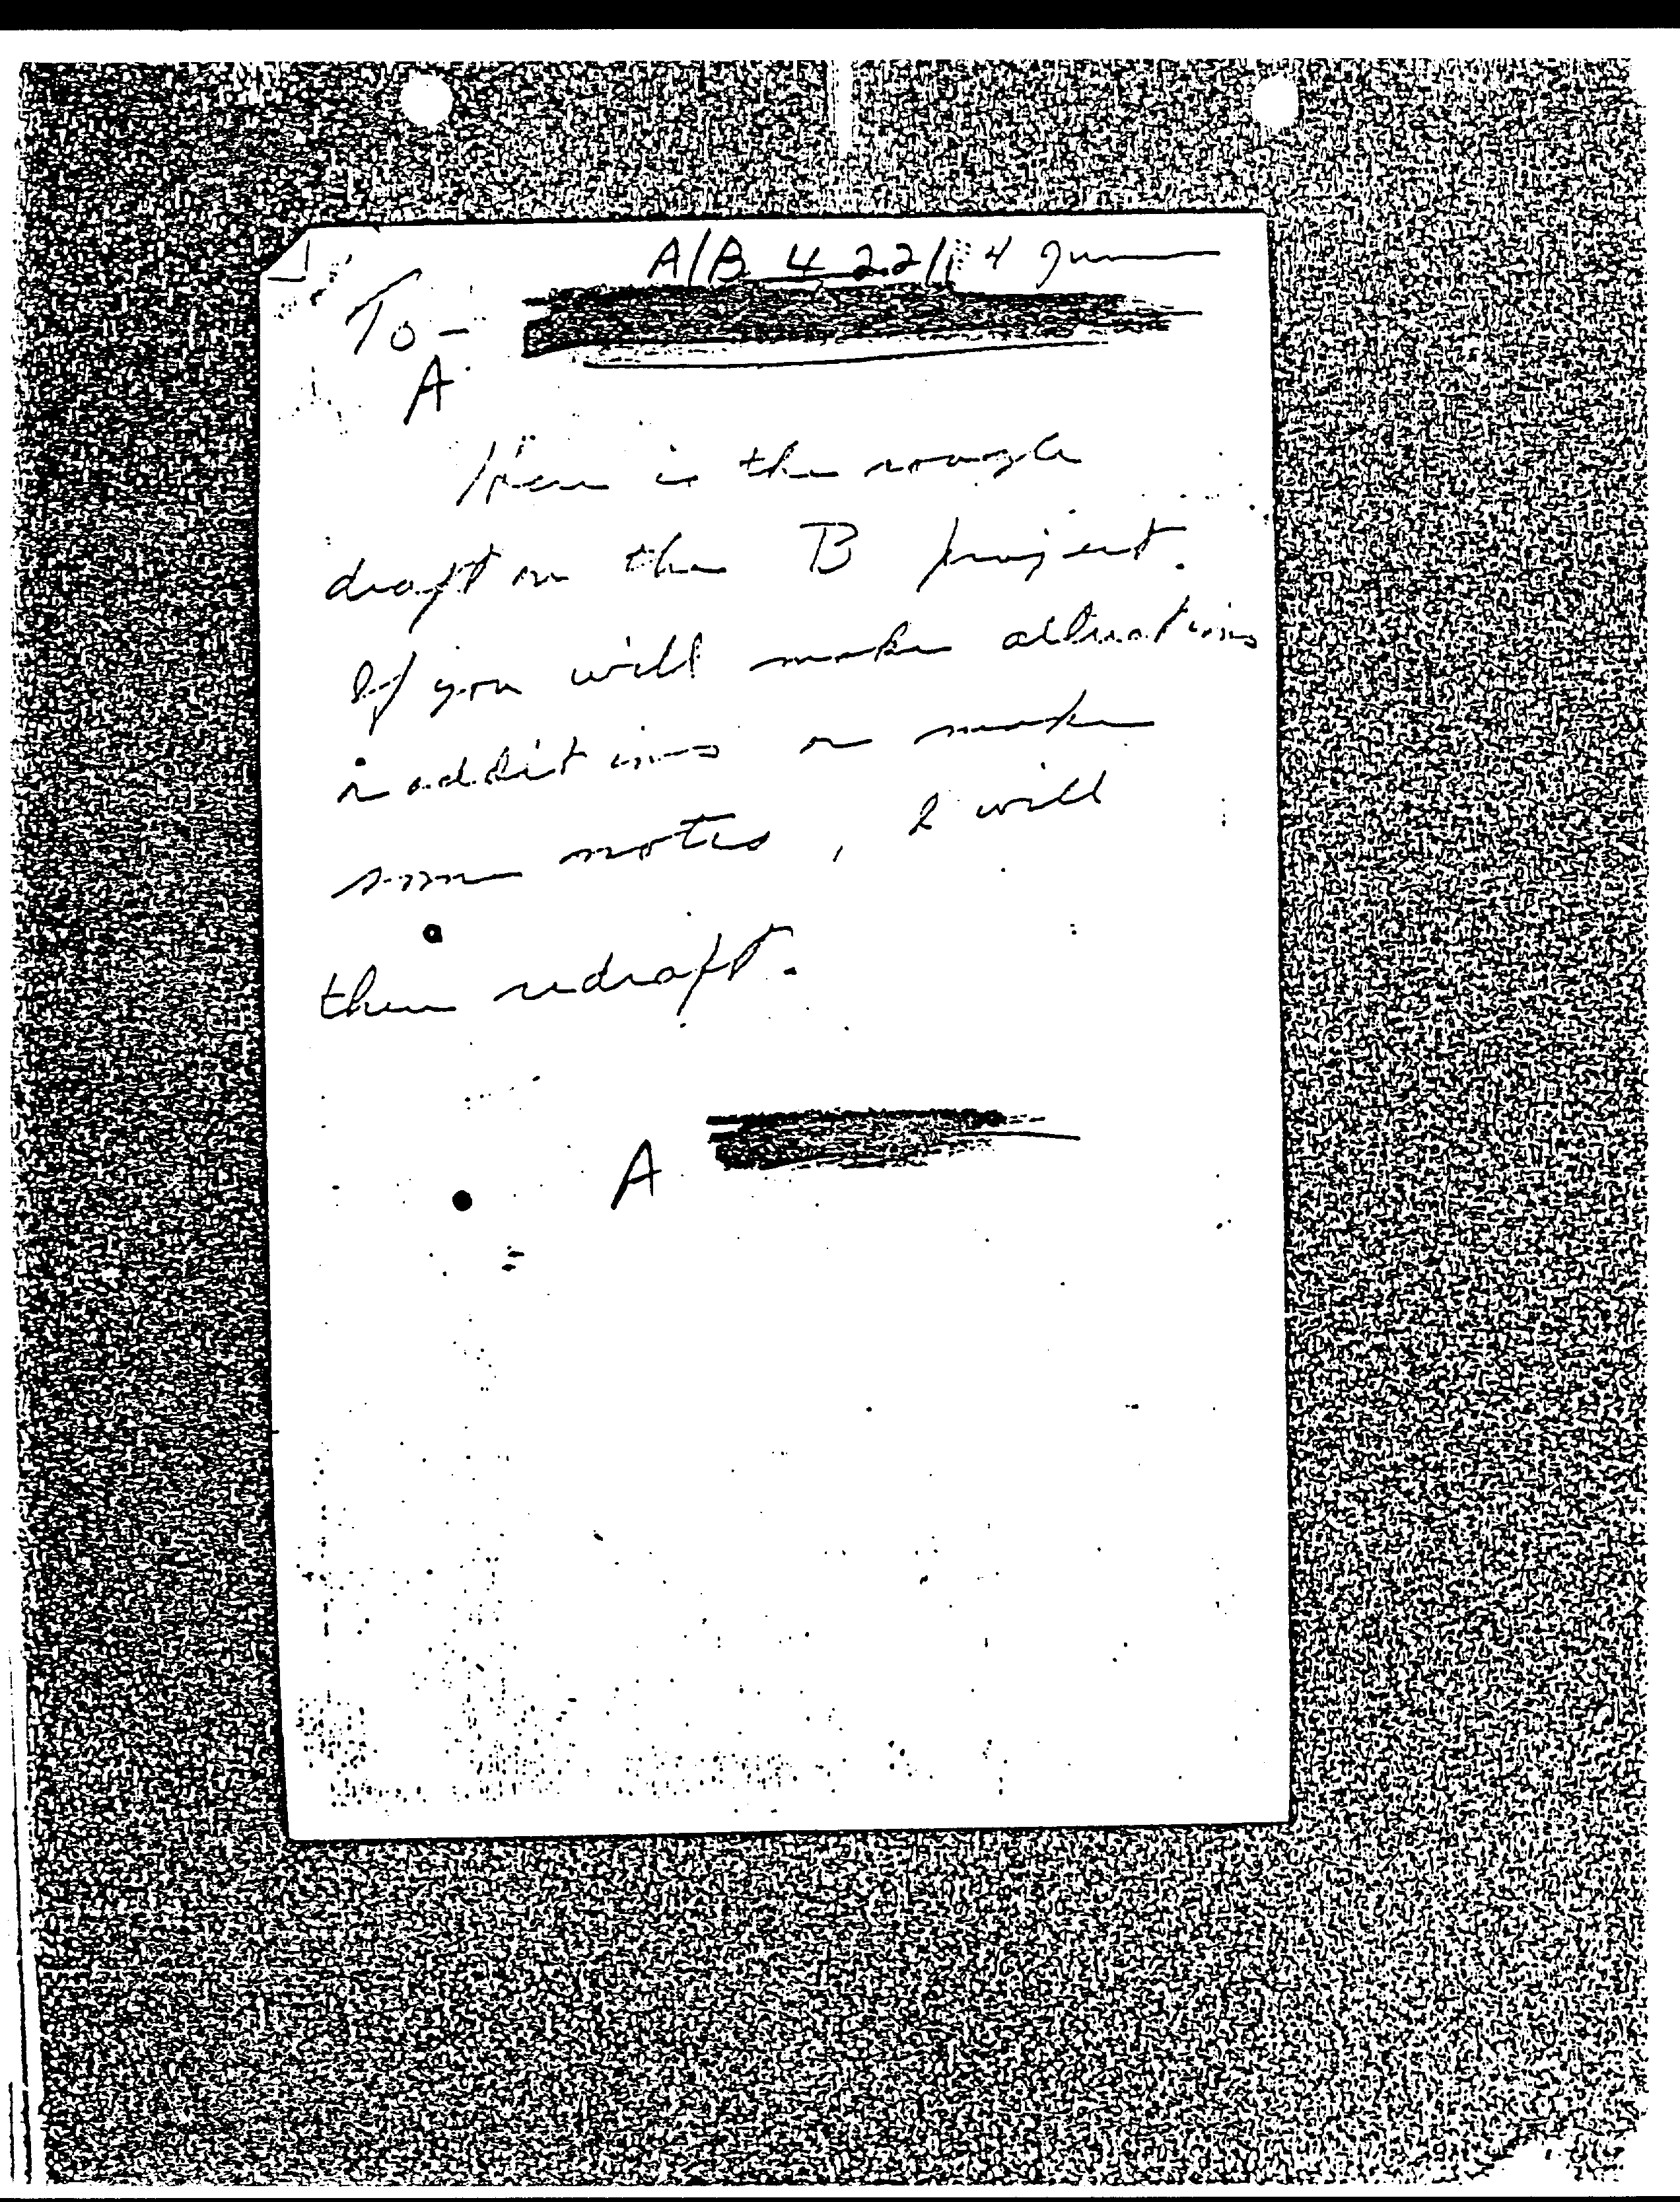 A/B 4 22/1 4 June
To -
A
Here is the rough
draft on the B project.
If you will make alterations
or additions or make
some notes, I will
then redraft.
A